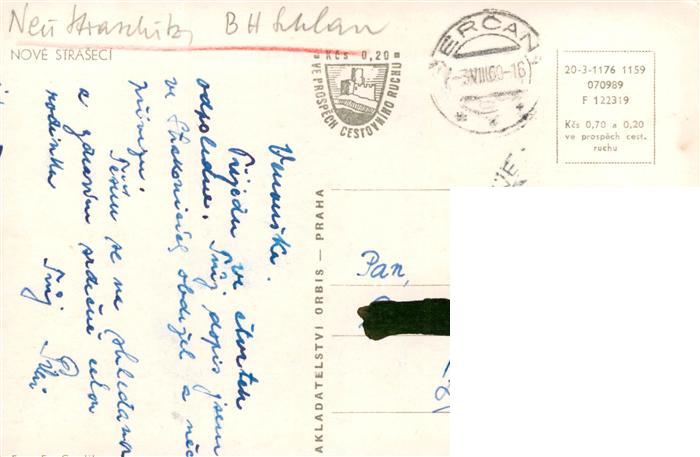 Neu Straschitz, BH Schlan
NOVÉ STRAŠECÍ
Kčs 0,20
VE PROSPĚCH CESTOVNÍHO RUCHU
ERČAN
-3.VIII.60-16
20-3-1176 1159
070989
F 122319
Kčs 0,70 a 0,20
ve prospěch cest.
ruchu
Přijedu ve čtvrtek
odpoledne. Tvůj dopis jsem
ve Strakonicích obdržel a něc
přivezu.
Těším se na shledanou
a zdravím srdečně celou
rodinku
Tvůj
AKLADATELSTVÍ ORBIS — PRAHA
Pan,